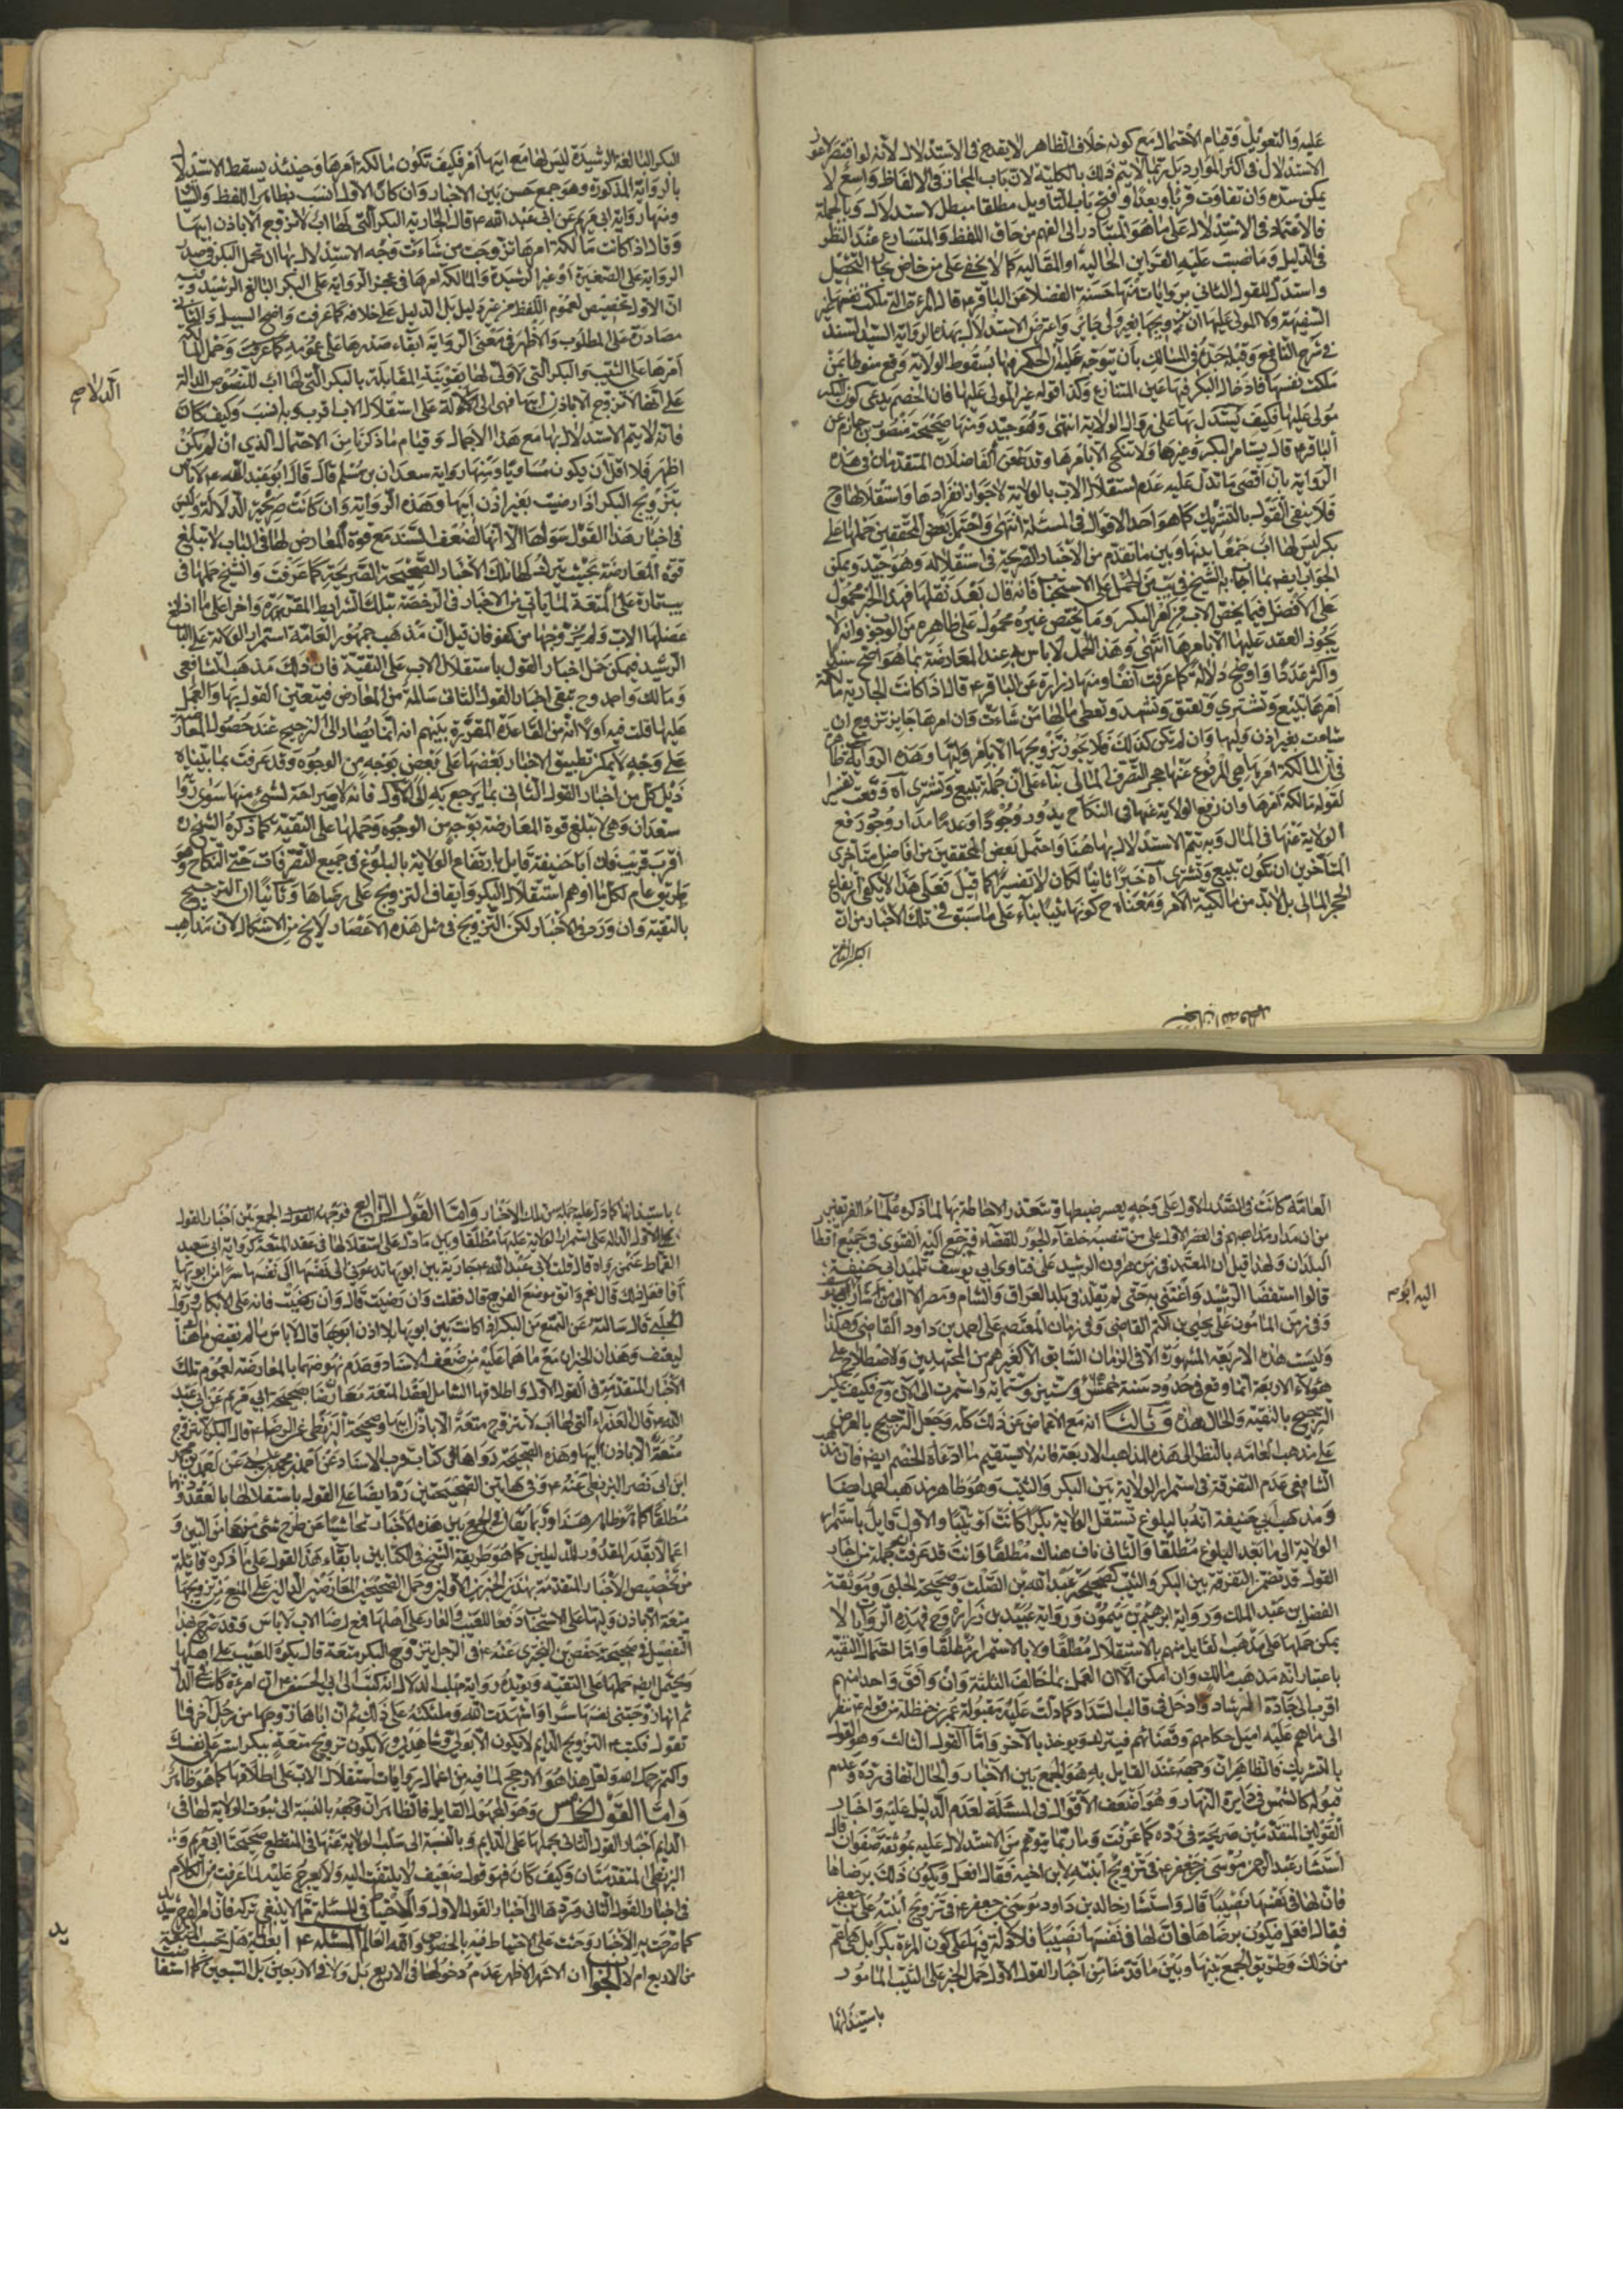 عليه والتعويل وقيام الاحتمال مع كونه خلاف الظاهر لا يقدح في الاستدلال لانه لو اقتصر لانحق
الاستدلال في اكثر الموارد بل ربما لا يتم ذلك بالكلية لان باب المجاز في الالفاظ واسع لا
يمكن سده وان تفاوت قربا وبعدا وفتح باب التاويل مطلقا مبطل لاستدلال وبالجملة
فالاعتماد في الاستدلال على ما هو المتبادر الى الفهم من حاق اللفظ والمتسارع عند النظر
في الدليل وما نصبت عليه القراين الحالية او المقالية كما لا يخفى على من خاض بحار التحصيل
واستدل للقول الثاني بروايات منها حسنة الفضلا عن الباقر ع قال المرءة التي ملكت نفسها غير
السفيهة ولا المولى عليها ان تزويجها بغير ولي جائز واعترض الاستدلال بهذه الرواية السيد السند
في شرح النافع وقبله جده في المسالك بان يتوجه عليه ان الحكم فيها بسقوط الولاية وقع منوطا بمن
ملكت نفسها فادخال البكر فيها عين المتنازع وكذا قوله غير المولى عليها فان الخصم يدعي كون البكر
مولى عليها فكيف يستدل بها على زوال الولاية انتهى وهو جيد ومنها صحيحة منصور بن حازم عن
الباقر ع قال يستامر البكر وغيرها ولا تنكح الا بامرها وقد طعن الفاضلان المتقدمان في هذه
الرواية بان اقصى ما تدل عليه عدم استقلال الاب بالولاية لا جواز انفرادها واستقلالها وح
فلا ينفى القول بالتشريك كما هو احد الاقوال في المسئلة انتهى واحتمل بعض المحققين حملها على
بكر ليس لها اب جمعا بينها وبين ما تقدم من الاخبار الصريحة في استقلاله وهو جيد ويمكن
الجواب ايضا بما اجاب به الشيخ في يب من الحمل على الاستحباب فانه قال بعد نقلها فهذا الخبر محمول
على الافضل فيما يختص الاب من امر البكر وما يختص غيره محمول على ظاهره من الوجوب وانه لا
يجوز العقد عليها الا بامرها انتهى وهذا الحمل لا باس به عند المعارضة بما هو اصح سندا
واكثر عددا واوضح دلالة كما عرفت آنفا ومنها رواية زرارة عن الباقر ع قال اذا كانت الجارية مالكة
امرها تبيع وتشتري وتعتق وتشهد وتعطي مالها من شاءت فان امرها جايز تزوج ان
شاءت بغير اذن وليها وان لم تكن كذلك فلا يجوز تزويجها الا بامر وليها وهذه الرواية ظاهرة
في ان المالكة امرها هي المرفوع عنها حجر التصرف المالي بناء على ان جملة تبيع وتشتري آه وقعت تفسيرا
لقوله مالكة امرها وان رفع الولاية عنها في النكاح يدور وجودا وعدما مدار وجود رفع
الولاية عنها في المال وبه يتم الاستدلال بها هنا واحتمل بعض المحققين من افاضل متاخري
المتاخرين ان تكون تبيع وتشتري آه خبرا ثانيا لكان لا تفسيرا كما قيل فعلى هذا لا يكفي ارتفاع
الحجر المالي بل لا بد من مالكية الامر ومعناه ح كونها ثيبا بناء على ما سبق في تلك الاخبار من ان
البكر البالغة
البكر البالغة الرشيدة ليس لها مع ابيها امر فكيف تكون مالكة امرها وحينئذ يسقط الاستدلال
بالرواية المذكورة وهو جمع حسن بين الاخبار وان كان الاول انسب بظاهر اللفظ والسياق
ومنها رواية ابي مريم عن ابي عبد الله ع قال الجارية البكر التي لها اب لا تزوج الا باذن ابيها
وقال اذا كانت مالكة امرها تزوجت من شاءت وجه الاستدلال بها ان تحمل البكر في صدر
الرواية على الصغيرة او غير الرشيدة والمالكة امرها في عجز الرواية على البكر البالغ الرشيد وفيه
ان الاول تخصيص لعموم اللفظ من غير دليل بل الدليل على خلافه كما عرفت واضح السبيل والثاني
مصادرة على المطلوب والاظهر في معنى الرواية ابقاء صدرها على عمومه كما عرفت وحمل المالكة
امرها على الثيب والبكر التي لا ولي لها بقرينة المقابلة بالبكر التي لها اب للنصوص الدالة
على انها لا تزوج الا باذن ابيها فهي الى الدلالة على استقلال الاب اقرب وبه انسب وكيف كان
فانه لا يتم الاستدلال بها مع هذا الاجمال وقيام ما ذكرنا من الاحتمال الذي ان لم يكن
اظهر فلا اقل ان يكون مساويا ومنها رواية سعدان بن مسلم قال قال ابو عبد الله ع لا باس
بتزويج البكر اذا رضيت بغير اذن ابيها وهذه الرواية وان كانت صريحة الدلالة وليس
في اخبار هذا القول سواها الا انها لضعف السند مع قوة المعارض لها في الباب لا تبلغ
قوة المعارضة بحيث يترك لها تلك الاخبار الصحيحة الصريحة كما عرفت والشيخ حملها في
يب تارة على المتعة لما ياتي من الاخبار في الرخصة بتلك الشرايط المقررة واخرى على ما اذا
عضلها الاب ولم يزوجها من كفو فان قيل ان مذهب جمهور العامة استمرار الولاية على البالغ
الرشيد فيمكن حمل اخبار القول باستقلال الاب على التقية فان ذلك مذهب الشافعي
ومالك واحمد وح تبقى اخبار القول الثاني سالمة من المعارض فيتعين القول بها والعمل
عليها قلت فيه اولا انه من القاعدة المقررة بينهم انه انما يصار الى الترجيح عند حصول المعارضة
على وجه لا يمكن تطبيق الاخبار بعضها على بعض بوجه من الوجوه وقد عرفت بما بيناه
ذيل كل من اخبار القول الثاني بما يرجع به الى الاول فانه لا صراحة لشئ منها سوى رواية
سعدان وهي لا تبلغ قوة المعارضة بوجه من الوجوه وحملها على التقية كما ذكره الشيخ ره
اقرب قريب فان ابا حنيفة قايل بارتفاع الولاية بالبلوغ في جميع التصرفات حتى النكاح وهو
بطريق عام لكل ما اوهم استقلال البكر وايقاف التزويج على رضاها وثانيا ان الترجيح
بالتقية وان ورد في الاخبار لكن الترجيح في مثل هذه الاعصار لا يخ من الاشكال لان مذاهب
الدلالة صح
العامة كانت في الصدر الاول على وجه يعسر ضبطها وتتعذر الاحاطة بها لما ذكره علماء الفريقين
من ان مدار مذاهبهم في العصر الاول على من تنصبه خلفاء الجور للقضاء فترجع اليه الفتوى في جميع اقطار
البلدان ولهذا قيل ان المعتمد في زمن هرون الرشيد على فتاوى ابي يوسف تلميذ ابي حنيفة
قالوا استقضاه الرشيد واعتنى به حتى لم يقلد في بلاد العراق والشام ومصر الا من اشار اليه ابو يوسف
وفي زمن المامون على يحيى بن اكثم القاضي وفي زمان المعتصم على احمد بن داود القاضي وهكذا
وليست هذه الاربعة المشهورة الا في الزمان السابق الا كغيرهم من المجتهدين والاصطلاح على
هؤلاء الاربعة انما وقع في حدود سنة خمس وستين وستمائة واستمرت الى الان وح فكيف يمكن
الترجيح بالتقية والحال هذه وثالثا انه مع الاغماض عن ذلك كله وجعل الترجيح بالعرض
على مذهب العامة بالنظر الى هذه المذاهب الاربعة فانه لا يستقيم ما ادعاه الخصم ايضا فان مذهب
الشافعي عدم التفرقة في استمرار الولاية بين البكر والثيب وهو ظاهر مذهب احمد ايضا
ومذهب ابي حنيفة انه بالبلوغ تستقل الولاية بكرا كانت او ثيبا والاول قايل باستمرار
الولاية الى ما بعد البلوغ مطلقا والثاني ناف هناك مطلقا وانت قد عرفت جملة من اخبار
القول قد تضمن التفرقة بين البكر والثيب كصحيحة عبد الله بن الصلت وصحيحة الحلبي وموثقة
الفضل بن عبد الملك ورواية ابرهيم بن ميمون ورواية عبيد بن زرارة وح فهذه الروايات لا
يمكن حملها على مذهب القايل منهم بالاستقلال مطلقا ولا بالاستمرار مطلقا واما احتمال التقية
باعتبار انه مذهب مالك وان امكن الا ان العمل بما خالف الثلثة وان وافق واحد منهم
اقرب الى جادة الرشاد وادخل في قالب السداد كما دلت عليه مقبولة عمر بن حنظلة من قوله ع ينظر
الى ما هم عليه اميل حكامهم وقضاتهم فيترك ويوخذ بالاخر واما القول الثالث وهو القول
بالتشريك فالظاهر ان وجهه عند القايل به هو الجمع بين الاخبار والحال انها في رده وعدم
قبوله كالشمس في دايرة النهار وهو اضعف الاقوال في المسئلة لعدم الدليل عليه واخبار
القولين المتقدمين صريحة في رده كما عرفت وما ربما يتوهم من الاستدلال عليه بموثقة صفوان قال
استشار عبد الرحمن موسى بن جعفر ع في تزويج ابنته لابن اخيه فقال افعل ويكون ذلك برضاها
فان لها في نفسها نصيبا قال واستشار خالد بن داود موسى بن جعفر ع في تزويج ابنته على بن جعفر
فقال افعل ويكون برضاها فان لها في نفسها نصيبا فلا دلالة فيها على كون المرءة بكرا بل هي اعم
من ذلك وطريق الجمع بينها وبين ما قدمنا من اخبار القول الاول حمل الخبر على الثيب المامور
باستيذانها
اليه ابو صح
باستيذانها كما دل عليه جملة من تلك الاخبار واما القول الرابع فوجهه القول الجمع بين اخبار القول
الاول الدالة على استمرار الولاية عليها مطلقا وبين ما دل على استقلالها في عقد المتعة كرواية ابي سعيد
القماط عمن رواه قال قلت لابي عبد الله ع جارية بين ابويها تدعوني الى نفسها سرا من ابويها
أفافعل ذلك قال نعم واتق موضع الفرج قال فقلت وان رضيت قال وان رضيت فانه عار على الابكار ورواية
الحلبي قال سالته عن التمتع من البكر اذا كانت بين ابويها بلا اذن ابويها قال لا باس ما لم يقتض ما هناك
لتعفف وهذان الخبران مع ما هما عليه من ضعف الاسناد وعدم نهوضهما بالمعارضة لعموم تلك
الاخبار المتقدمة في القول الاول واطلاقها الشامل لعقد المتعة معارضا بصحيحة ابي مريم عن ابي عبد
الله ع قال العذراء التي لها اب لا تتزوج متعة الا باذن ابيها وصحيحة البزنطي عن الرضا ع قال البكر لا تتزوج
متعة الا باذن ابيها وهذه الصحيحة رواها في كتاب قرب الاسناد عن احمد بن محمد بن عيسى عن احمد بن محمد
ابن ابي نصر البزنطي عنه ع وفي هاتين الصحيحتين رد ايضا على القول باستقلالها بالعقد
مطلقا كما هو ظاهر هذا وربما يقال في الجمع بين هذه الاخبار تحاشيا عن طرح شئ منها من البين و
اعمالا بقدر المقدور للدليلين كما هو طريقة الشيخ في الكتابين بابقاء هذا القول على ما ذكره قائله
من تخصيص الاخبار المتقدمة بهذين الخبرين الاولين وحمل الصحيحين المعارضين الدالين على المنع من تزويجها
متعة الا باذن وليها على الاستحباب دفعا للعيب والعار على اهلها فمع رضا الاب لا باس وقد صرح بهذا
التفصيل في صحيحة حفص بن البختري عنه ع في الرجل يتزوج البكر متعة قال يكره للعيب على اهلها
ويحتمل ايضا حملها على التقية ويؤيده رواية مهلب الدلال انه كتب الى ابي الحسن ع ان امرءة كانت معي في الدار
ثم انها زوجتني نفسها سرا واشهدت الله وملئكته على ذلك ثم ان اباها زوجها من رجل آخر فما
تقول فكتب ع التزويج الدايم لا يكون الا بولي وشاهدين ولا يكون تزويج متعة ببكر استر على نفسك
واكتم رحمك الله ولعل هذا هو الارجح لما فيه من اعمال روايات استقلال الاب على اطلاقها كما هو ظاهر
واما القول الخامس وهو المجهول القايل فالظاهر ان وجهه بالنسبة الى ثبوت الولاية لها في
الدايم اخبار القول الثاني بحملها على الدايم وبالنسبة الى سلب الولاية عنها في المنقطع صحيحتا ابي مريم و
البزنطي المتقدمتان وكيف كان فهو قول ضعيف لا يلتفت اليه ولا يعرج عليه لما عرفت من الكلام
في اخبار القول الثاني وردها الى اخبار القول الاول والاحتياط في المسئلة مما لا ينبغي تركه فان امر الفرج شديد
كما صرحت به الاخبار وحثت على الاحتياط فيه بالخصوص والله العالم المسئلة ع ا بعدله هل تحسب المتعة
من الاربع ام لا الجواب ان الاشهر الاظهر عدم دخولها في الاربع بل ولا في الاربعين بل السبعين كما استفاضت
يد